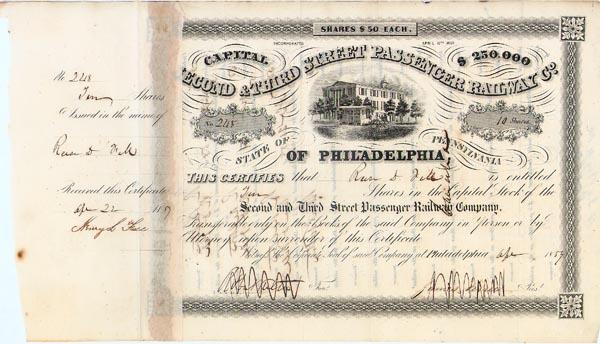 SHARES $50 EACH.
INCORPORATED APRIL 10TH 1858
CAPITAL $250,000
SECOND & THIRD STREET PASSENGER RAILWAY Co.
No 248
Ten Shares
Issued in the name of
Received this Certificate
Apr 22 1859
No. 248
10 Shares
STATE OF PENNSYLVANIA
OF PHILADELPHIA
THIS CERTIFIES that is entitled
Ten Shares in the Capital Stock of the
Second and Third Street Passenger Railway Company.
Transferable only on the Books of the said Company in person or by
Attorney upon surrender of this Certificate
Witness the Seal of said Company at Philadelphia Apr 1859
Pres't